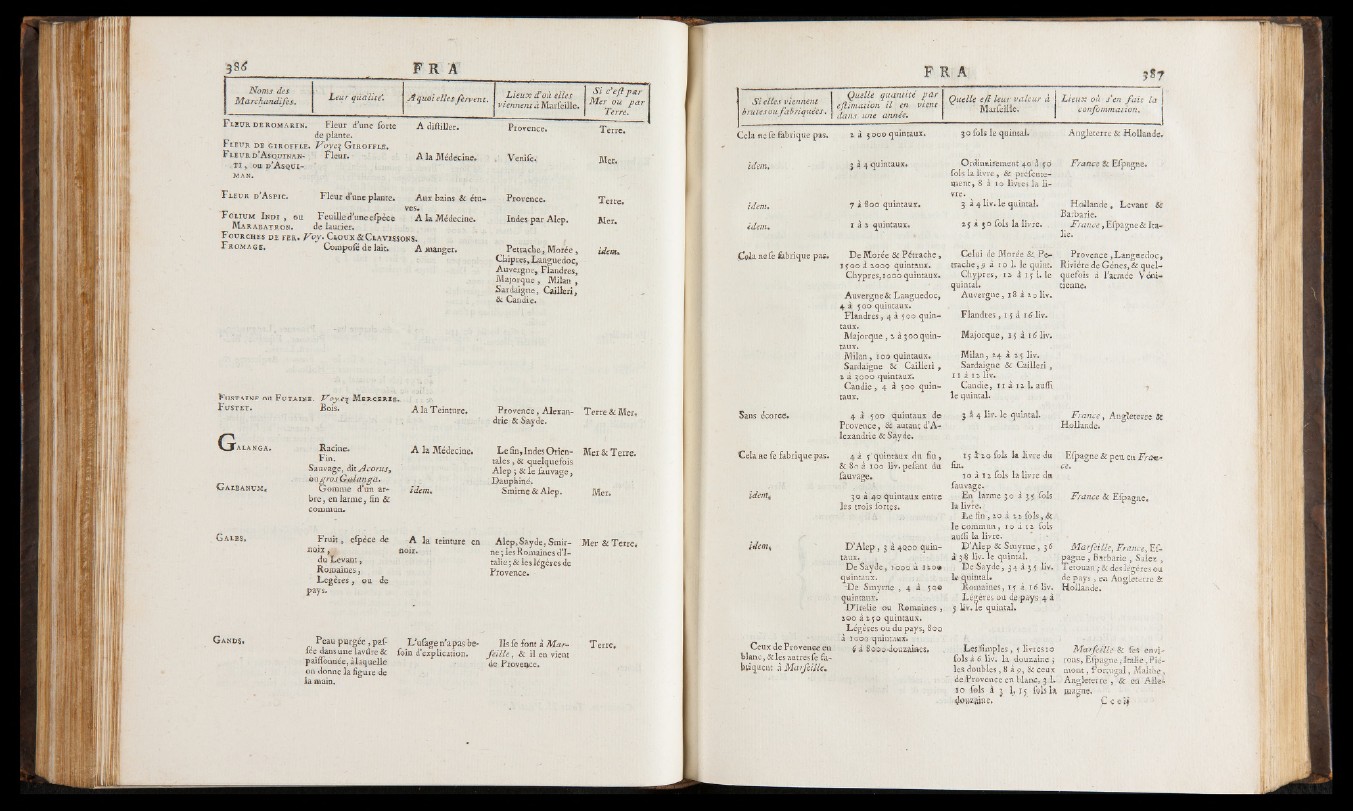 386
FRA
Noms des
Marchandises.
Leur qualité.
A quoi elles servent.
Lieux d'où elles
viennent à Marseille.
Si c'est par
Mer ou par
Terre.
FLEUR DE ROMARIN.
Fleur d'une sorte
de plante.
A distiller.
Provence.
Terre.
FLEUR DE GIROFFLE. Voyez GIROFFLE.
FLEUR D'ASQUINAN-
TI, ou D'ASQUI-
MAN.
Fleur.
A la Médecine.
Venise.
Mer.
FLEUR D'ASPIC.
Fleur d'une plante.
Aux bains & étu-
ves.
Provence.
Terre.
FOLIUM INDI, ou
MARABATRON.
Feuille d'une espéce
de laurier.
A la Médecine.
Indes par Alep.
Mer.
FOURCHES DE FER. Voy. CLOUX & CLAVISSONS.
FROMAGE.
Composé de lait.
A manger.
Petrache, Morée,
Chipres, Languedoc,
Auvergne, Flandres,
Majorque, Milan,
Sardaigne, Cailleri,
& Candie.
idem.
FUSTAINE ou FUTAINE. Voyez MERCERIES.
FUSTET.
Bois.
A la Teinture.
Provence, Alexan-
drie & Sayde.
Terre & Mer.
GALANGA.
Racine.
Fin.
Sauvage, dit Acorus,
ou gros Galanga.
A la Médecine.
Le fin, Indes Orien-
tales, & quelquefois
Alep; & le sauvage,
Dauphiné.
Mer & Terre.
GALBANUM.
Gomme d'un ar-
bre, en larme, fin &
commun.
idem.
Smirne & Alep.
Mer.
GALES.
Fruit, espéce de
noix,
du Levant,
Romaines,
Legéres, ou de
pays.
A la teinture en
noir.
Alep, Sayde, Smir-
ne; les Romaines d'I-
talie; & les légéres de
Provence.
Mer & Terre.
GANDS.
Peau purgée, pas-
sée dans une lavûre &
paissonnée, à laquelle
on donne la figure de
la main.
L'usage n'a pas be-
soin d'explication.
Ils se font à Mar-
seille, & il en vient
de Provence.
Terre.
FRA
387
Si elles viennent
brutes ou fabriquées.
Quelle quantité par
estimation il en vient
dans une année.
Quelle est leur valeur à
Marseille.
Lieux où s'en fait la
consommation.
Cela ne se fabrique pas.
2 à 3000 quintaux.
30 sols le quintal.
Angleterre & Hollande.
idem.
3 à 4 quintaux.
Ordinairement 40 à 50
sols la livre, & présente-
ment, 8 à 10 livres la li-
vre.
France & Espagne.
idem.
7 à 800 quintaux.
3 à 4 liv. le quintal.
Hollande, Levant &
Barbarie.
idem.
1 à 2 quintaux.
25 à 30 sols la livre.
France, Espagne & Ita-
lie.
Cela ne se fabrique pas.
De Morée & Pétrache,
1500 à 2000 quintaux.
Chypres, 1000 quintaux.
Auvergne & Languedoc,
4 à 500 quintaux.
Flandres, 4 à 500 quin-
taux.
Majorque, 2 à 300 quin-
taux.
Milan, 100 quintaux.
Sardaigne & Cailleri,
2 à 3000 quintaux.
Candie, 4 à 500 quin-
taux.
Celui de Morée & Pe-
trache, 9 à 10 l. le quint.
Chypres, 12 à 15 l. le
quintal.
Auvergne, 18 à 20 liv.
Flandres, 15 à 16 liv.
Majorque, 15 à 16 liv.
Milan, 24 à 25 liv.
Sardaigne & Cailleri,
11 à 12 liv.
Candie, 11 à 12 l. aussi
le quintal.
Provence, Languedoc,
Riviére de Génes, & quel-
quefois à l'armée Véni-
tienne.
Sans écorce.
4 à 500 quintaux de
Provence, & autant d'A-
lexandrie & Sayde.
3 à 4 liv. le quintal.
France, Angleterre &
Hollande.
Cela ne se fabrique pas.
4 à 5 quintaux du fin,
& 80 à 100 liv. pesant du
sauvage.
15 à 20 sols la livre du
fin.
10 à 12 sols la livre du
sauvage.
Espagne & peu en Fran-
ce.
idem.
30 à 40 quintaux entre
les trois sortes.
En larme 30 à 35 sols
la livre.
Le fin, 20 à 22 sols, &
le commun, 10 à 12 sols
aussi la livre.
France & Espagne.
idem.
D'Alep, 3 à 4000 quin-
taux.
De Sayde, 1000 à 1200
quintaux.
De Smyrne, 4 à 500
quintaux.
D'Italie ou Romaines,
200 à 250 quintaux.
Légéres ou du pays, 800
à 1000 quintaux.
D'Alep & Smyrne, 36
à 38 liv. le quintal.
De Sayde, 34 à 35 liv.
le quintal.
Romaines, 15 à 16 liv.
Légéres ou de pays 4 à
5 liv. le quintal.
Marseille, France, Es-
pagne, Barbarie, Salez,
Tetouan; & des légéres ou
de pays, en Angleterre &
Hollande.
Ceux de Provence en
blanc, & les autres se fa-
briquent à Marseille.
6 à 8000 douzaines.
Les simples, 5 livres 10
sols à 6 liv. la douzaine;
les doubles, 8 à 9, & ceux
de Provence en blanc, 3 l.
10 sols à 3 l. 15 sols la
douzaine.
Marseille & ses envi-
rons, Espagne, Italie, Pié-
mont, Portugal, Malthe,
Angleterre, & en Alle-
magne.
C c c ij